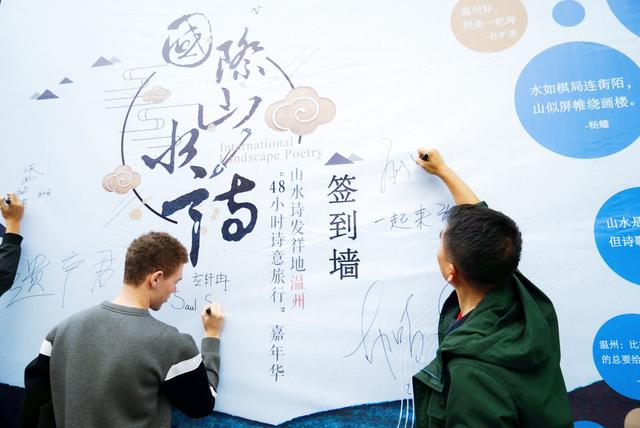 國際
山水
诗
International
Landscape Poetry
山水诗发祥地温州
"48小时诗意旅行"嘉年华
签到墙
温州好，
别是一乾坤
-孙扩图
水如棋局连街陌，
山似屏帷绕画楼。
-杨蟠
山水是
但诗歌
温州：比
的总要给
一起来
Saul S